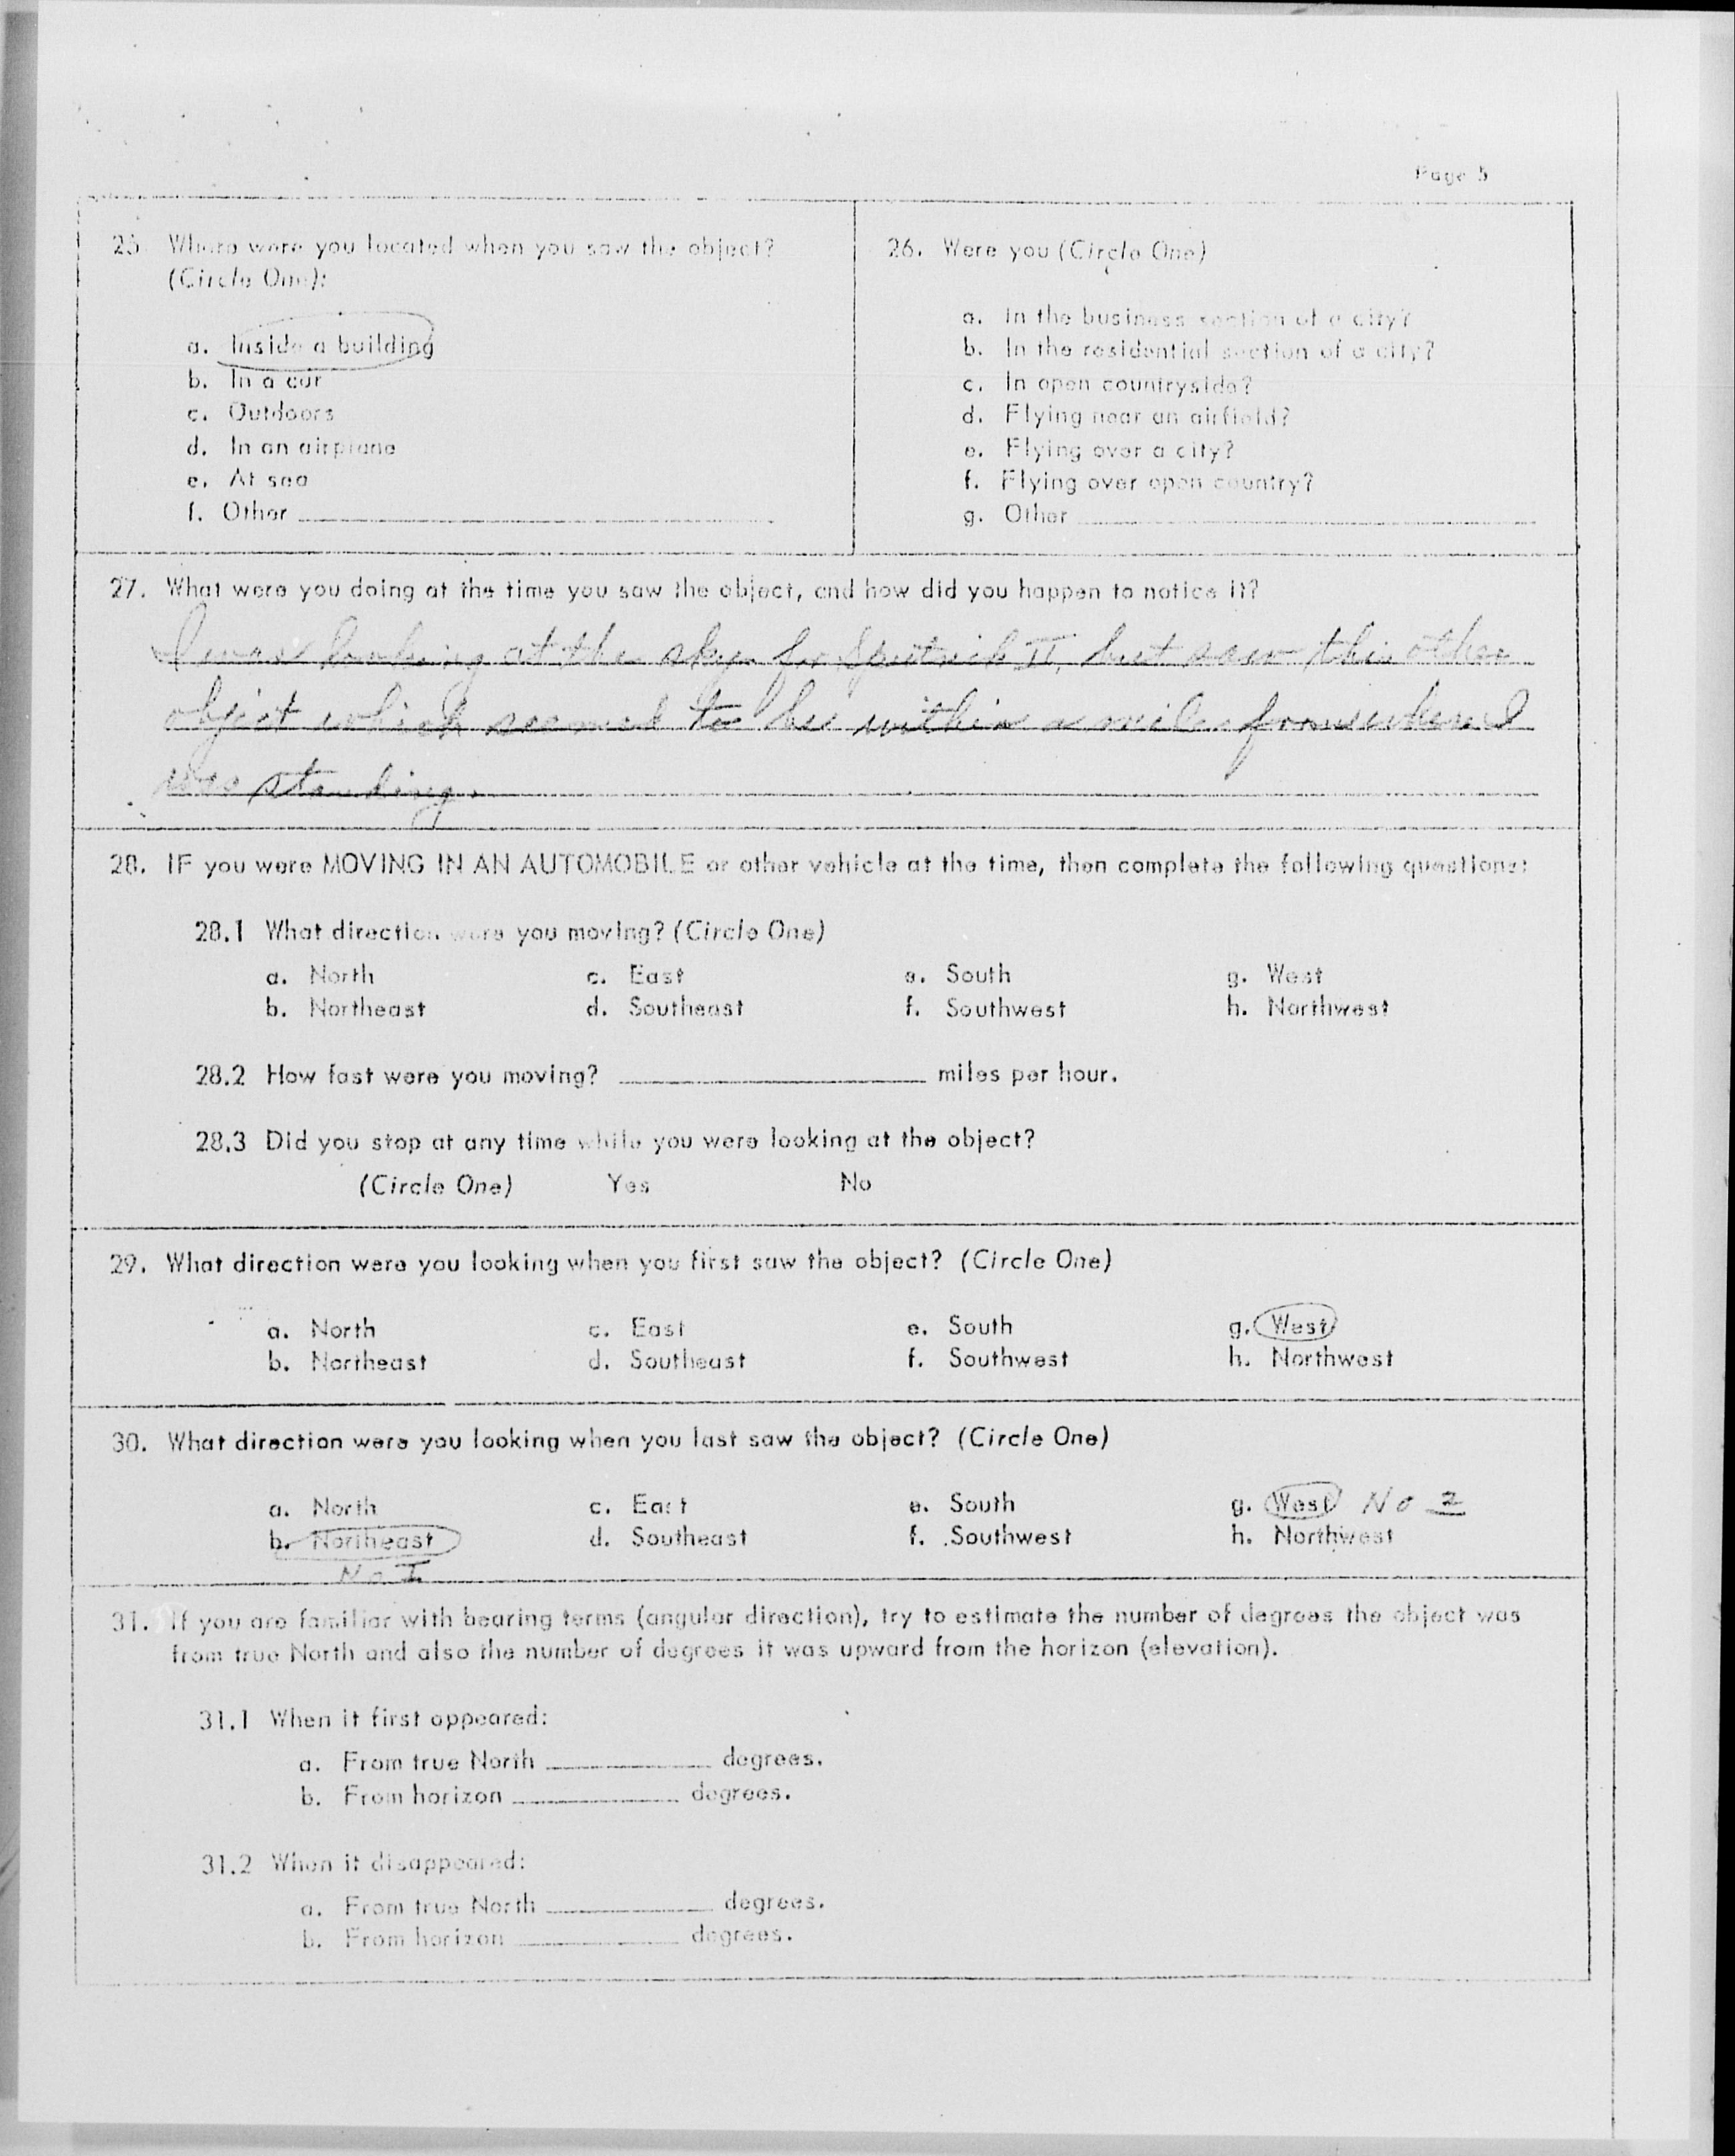 Page 5
25. Where were you located when you saw the object?
(Circle One):
a. Inside a building
b. In a car
c. Outdoors
d. In an airplane
e. At sea
f. Other
26. Were you (Circle One)
a. In the business section of a city?
b. In the residential section of a city?
c. In open countryside?
d. Flying near an airfield?
e. Flying over a city?
f. Flying over open country?
g. Other
27. What were you doing at the time you saw the object, and how did you happen to notice it?
I was looking at the sky for Sputnick II, but saw this other
object which seemed to be within a mile from where I
was standing.
28. IF you were MOVING IN AN AUTOMOBILE or other vehicle at the time, then complete the following questions:
28.1 What direction were you moving? (Circle One)
a. North c. East e. South g. West
b. Northeast d. Southeast f. Southwest h. Northwest
28.2 How fast were you moving? miles per hour.
28.3 Did you stop at any time while you were looking at the object?
(Circle One) Yes No
29. What direction were you looking when you first saw the object? (Circle One)
a. North c. East e. South g. West
b. Northeast d. Southeast f. Southwest h. Northwest
30. What direction were you looking when you last saw the object? (Circle One)
a. North c. East e. South g. West No 2
b. Northeast d. Southeast f. Southwest h. Northwest
No I
31. If you are familiar with bearing terms (angular direction), try to estimate the number of degrees the object was
from true North and also the number of degrees it was upward from the horizon (elevation).
31.1 When it first appeared:
a. From true North degrees.
b. From horizon degrees.
31.2 When it disappeared:
a. From true North degrees.
b. From horizon degrees.